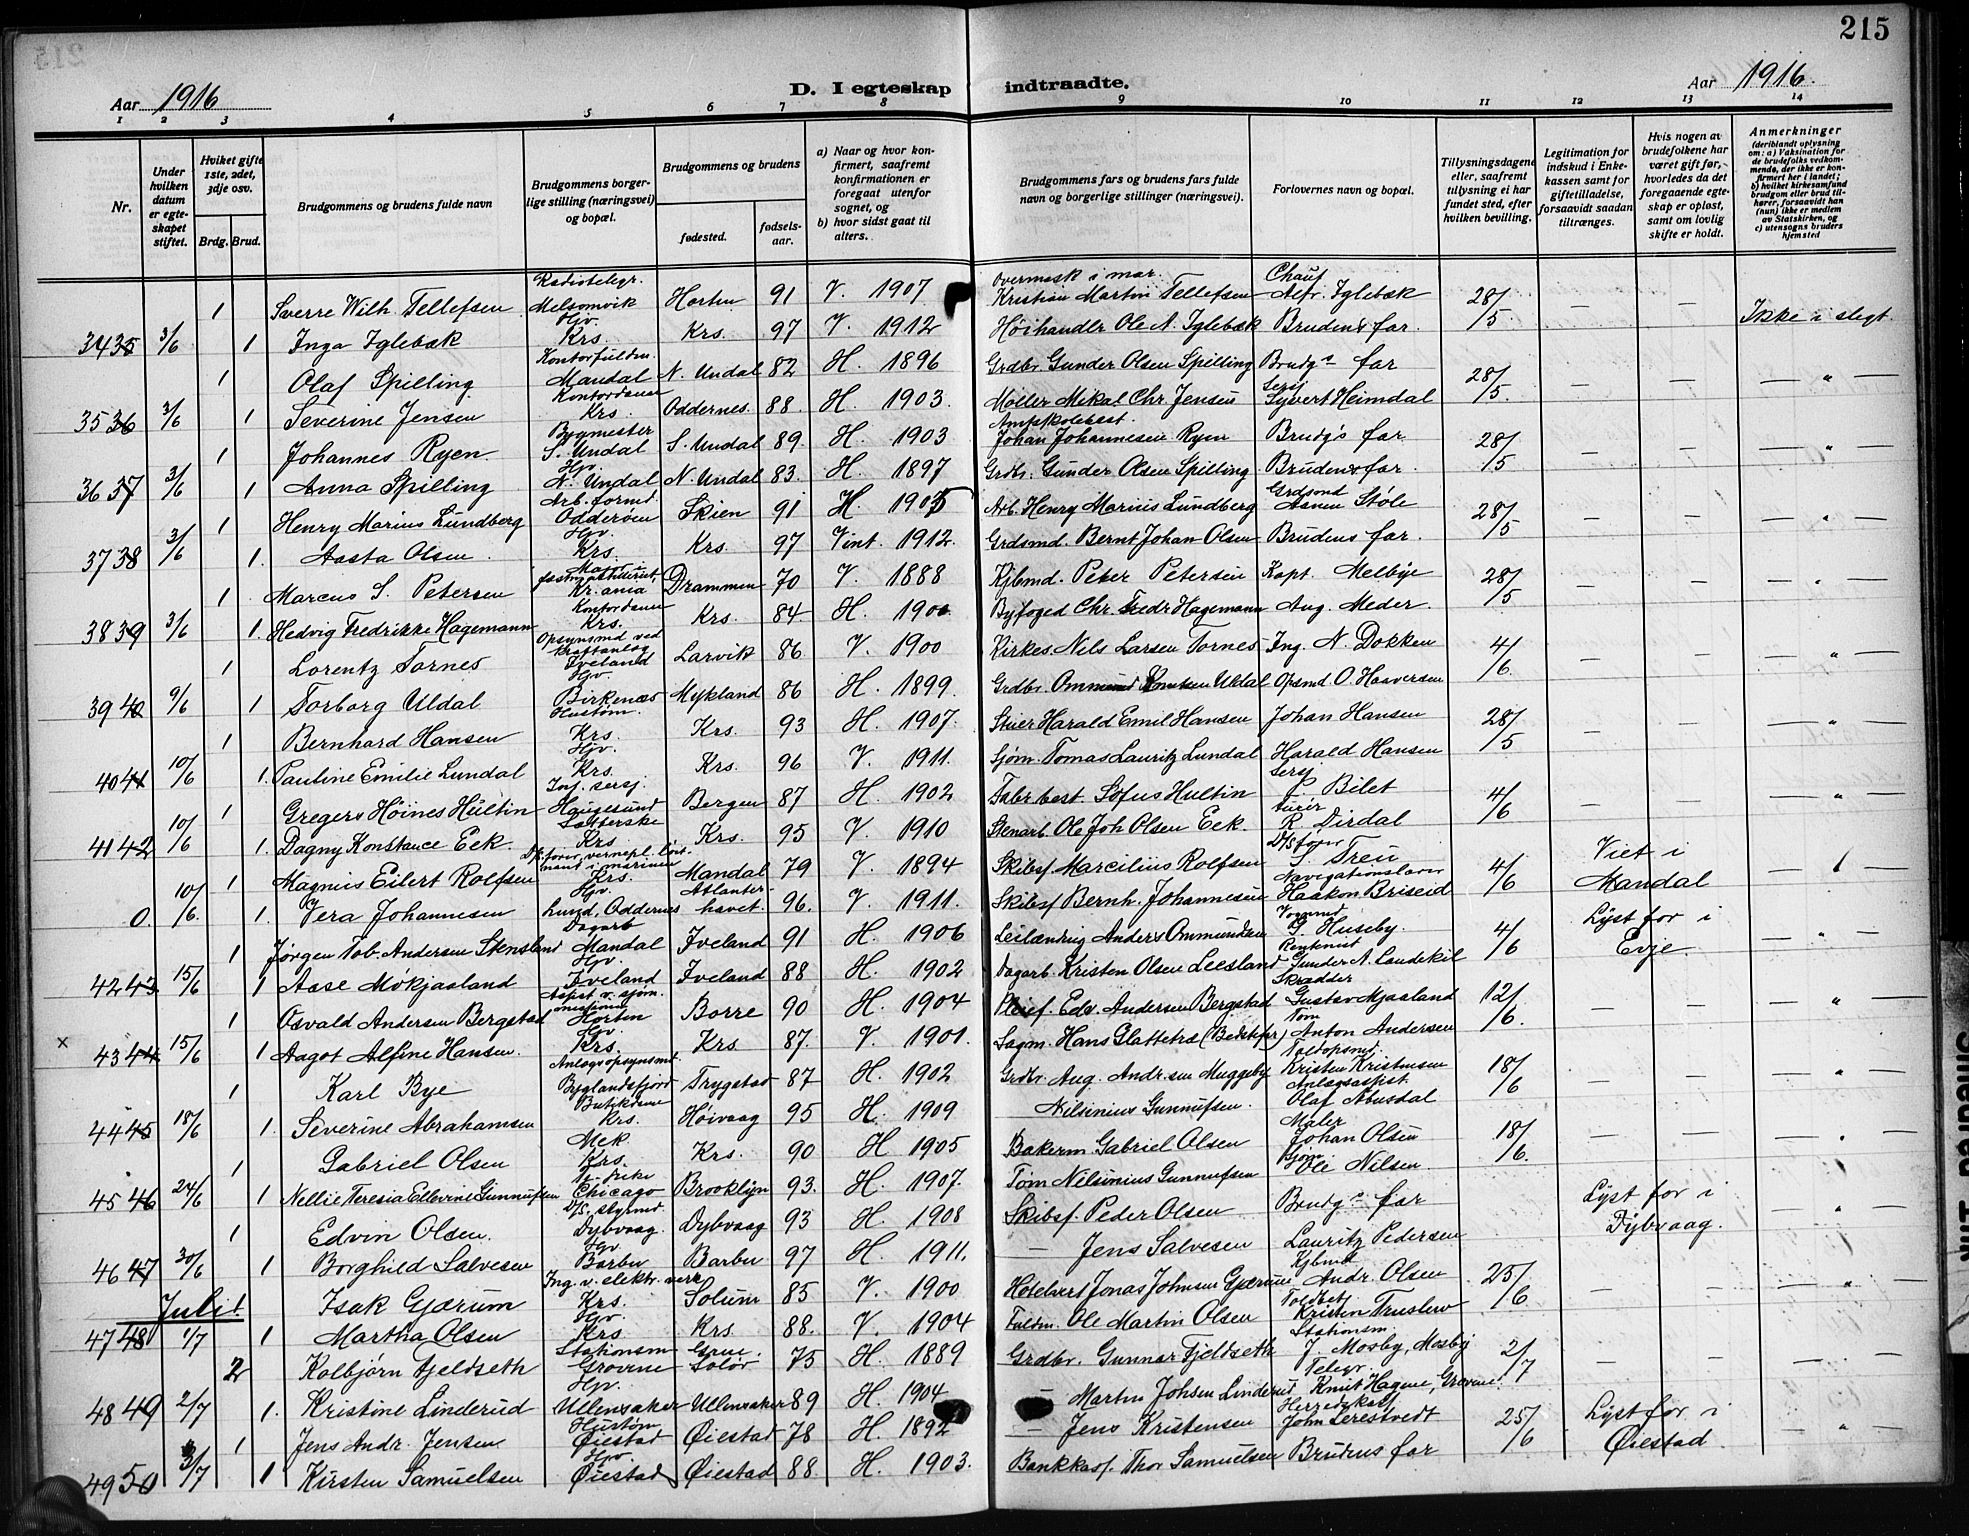 215
Aar 1916
D. I egteskap indtraadte.
Aar 1916.
1 2 3 4 5 6 7 8 9 10 11 12 13 14
Nr.
Under hvilken datum er egteskapet stiftet.
Hvilket gifte 1ste, 2det, 3dje osv.
Brdg. Brud.
Brudgommens og brudens fulde navn
Brudgommens borgerlige stilling (næringsvei) og bopæl.
Brudgommens og brudens
fødested.
fødselsaar.
a) Naar og hvor konfirmert, saafremt konfirmationen er foregaat utenfor sognet, og
b) hvor sidst gaat til alters.
Brudgommens fars og brudens fars fulde navn og borgerlige stillinger (næringsvei).
Forlovernes navn og bopæl.
Tillysningsdagene eller, saafremt tillysning ei har fundet sted, efter hvilken bevilling.
Legitimation for indskud i Enkekassen samt for giftetilladelse, forsaavidt saadan tiltrænges.
Hvis nogen av brudefolkene har været gift før, hvorledes da det foregaaende egteskap er opløst, samt om lovlig skifte er holdt.
Anmerkninger (deriblandt oplysning om: a) Vaksination for de brudefolks vedkommende, der ikke er konfirmert her i landet; b) hvilket kirkesamfund brudgom eller brud tilhører, forsaavidt han (hun) ikke er medlem av Statskirken, og c) utensogns bruders hjemsted
1 Sverre Wilh. Tellefsen Radiotelegr. Melsomvik Horten 91 V. 1907 Overmask i mar. Kristian Martin Tellefsen Chauf Alfr. Iglebæk 28/5 — — Ikke i slegt
34 35 3/6 1 Inga Iglebæk Hv. Krs. Krs. 97 V. 1912 Høihandlr Ole N. Iglebæk Brudens far.
1 Olaf Spilling Kontorfuldm. Mandal N. Undal 82 H. 1896 Grdbr. Gunder Olsen Spilling Brudgs far 28/5 — — — " —
35 36 3/6 1 Severine Jensen Kontordame Krs. Oddernes. 88. H. 1903. Møller Mikal Chr. Jensen Sersj Syvert Heimdal
1 Johannes Ryen. Bygmester S. Undal S. Undal 89. H. 1903 Amtskolebest. Johan Johannesen Ryen Brudg's far 28/5 — — — " —
36 37 3/6 1 Anna Spilling Hv. N. Undal N. Undal 83. H. 1897 Grdbr. Gunder Olsen Spilling Brudens far.
1 Henry Marius Lundberg Arb. formd. Odderøen Skien 91 H. 1905 Arb. Henry Marius Lundberg Grdsmd Asnen Støle 28/5 — — — " —
37 38 3/6 1. Aasta Olsen. Hv. Krs. Krs. 97 V int. 1912. Grdsmd. Bernt Johan Olsen Brudens far.
1 Marcus S. Petersen Major Kr.ania Drammen 70 V. 1888 Kjbmd. Peter Petersen Kapt. Melbye 28/5 — — — " —
38 39 3/6 1. Hedvig Fredrikke Hagemann Kontordame Krs. Krs. 84. H. 1900. Byfoged Chr. Fredr Hagemann Aug. Meder.
1 Lorentz Tornes Opsynsmd ved kraftanlæg Iveland Larvik 86 V. 1900 Kirkes. Nils Larsen Tornes Ing. N. Dokken 4/6 — — — " —
39 40 9/6 1 Torborg Uldal Hv. Birkenæs Mykland 86 H. 1899. Grdbr. Ommund Uldal Opsmd O. Haaversen
1 Bernhard Hansen Hustøm. Krs. Krs. 93 H. 1907. Stuer Harald Emil Hansen Johan Hansen 28/5 — — — " —
40 41 10/6 1. Pauline Emilie Lundal Hv. Krs. Krs. 96 V. 1911. Sjøm. Tomas Lauritz Lundal Harald Hansen
1 Gregers Høines Hultin Inf. sersj. Haugesund Bergen 87 H. 1902 Fabr. best. Sofus Hultin Sersj P. Bilet 4/6 — — — " —
41 42 10/6 1. Dagny Konstance Eek. Krs Krs. 95 V. 1910 Stenarb. Ole Joh Olsen Eek. Furér R. Dirdal
1 Magnus Eilert Rolfsen D/s fører, vernepl. løitnant i marinen Krs. Mandal 79 V. 1894 Skibsf. Marcilius Rolfsen D/s fører S. Treu 4/6 Viet i Mandal —
0. 10/6. 1. Vera Johannesen Hv. Lund, Oddernes Atlanterhavet. 96. V. 1911. Skibsf Bernh. Johannesen Navigationslærer Haakon Briseid
1 Jørgen Tob. Andersen Stensland Dagarb Mandal Iveland 91 H. 1906 Leilænding Anders Ommundsen G. Huseby. 4/6 Lyst for i Evje. — " —
42 43 15/6 1 Aase Møkjaaland Hv. Iveland Iveland 88 H. 1902 Dagarb. Kristen Olsen Leesland Gunder A. Landekil
1 Osvald Andersen Bergstad Asst v. sjøm. Horten Borre 90 H. 1904 Edv. Andersen Bergstad Skrædder Gustav Mjaaland 12/6. — — — " —
x 43 44 15/6 1 Aagot Alfine Hansen. Hv. Krs. Krs 87. V. 1901. Sagm. Hans Glattetre (Bedstefar) Tøm Anton Andersen
1 Karl Bye Anlægsopsynsmd. Byglandsfjord Trygstad 87 H. 1902 Grdbr. Aug. Andr.sen Muggeby Toldopsmd. Kristen Kristensen 18/6 — — — " —
44 45 18/6 1. Severine Abrahamsen Butikdame Krs. Høivaag 95 H. 1909 Nilsinius Gunnufsen. Anlægsassist. Olaf Abusdal
1 Gabriel Olsen Mek. Krs. Krs. 90 H 1905 Bakerm. Gabriel Olsen Maler Johan Olsen 18/6. — — — " —
45 46 24/6 1 Nellie Teresia Ellevine Gunnufsen Chicago Brooklyn 93. H. 1907. Tøm Nilsinius Gunnufsen Ole Nilsen.
1 Edvin Olsen. D/s. styrmd Dybvaag. Dybvaag 93 H. 1908 Skibsf. Peder Olsen Brudgs far Lyst for i Dybvaag.
46 47 30/6 1 Borghild Salvesen Hv. Barbu Barbu 97 H 1911. — Jens Salvesen Lauritz Pedersen
Juli.
Isak Gjærum Ing. v. elektr. verk Krs. Solum 85 V. 1900 Hotelvert Jonas Johnsen Gjærum Kjbmd Andr. Olsen 25/6 — — — " —
47 48 1/7 1 Martha Olsen Hv. Krs Krs. 88. V. 1904 Fuldm. Ole Martin Olsen Toldbetj Kristen Truslew
2 Kolbjørn Fjeldseth Stationsm Grovene Grue. Solør 75 H. 1889 Grdbr. Gunnar Fjeldseth Stationsm. J. Mosby, Mosby 2/7 — — —
48 49 2/7 1. Kristine Linderud Hv. Ullensaker Ullensaker 89 H. 1904 — Martin Johsen Linderud Telegr. Knut Hagene, Grovene.
1 Jens Andr. Jensen Hustøm Øiestad Øiestad 78 H. 1892 — Jens Kristensen Herredskass John Lerestvedt 25/6 Lyst for i Øiestad — " —
49 50 3/7 1 Kirsten Samuelsen Hv. Øiestad Øiestad 88. H. 1903. Bankkass. Thor Samuelsen Brudens far